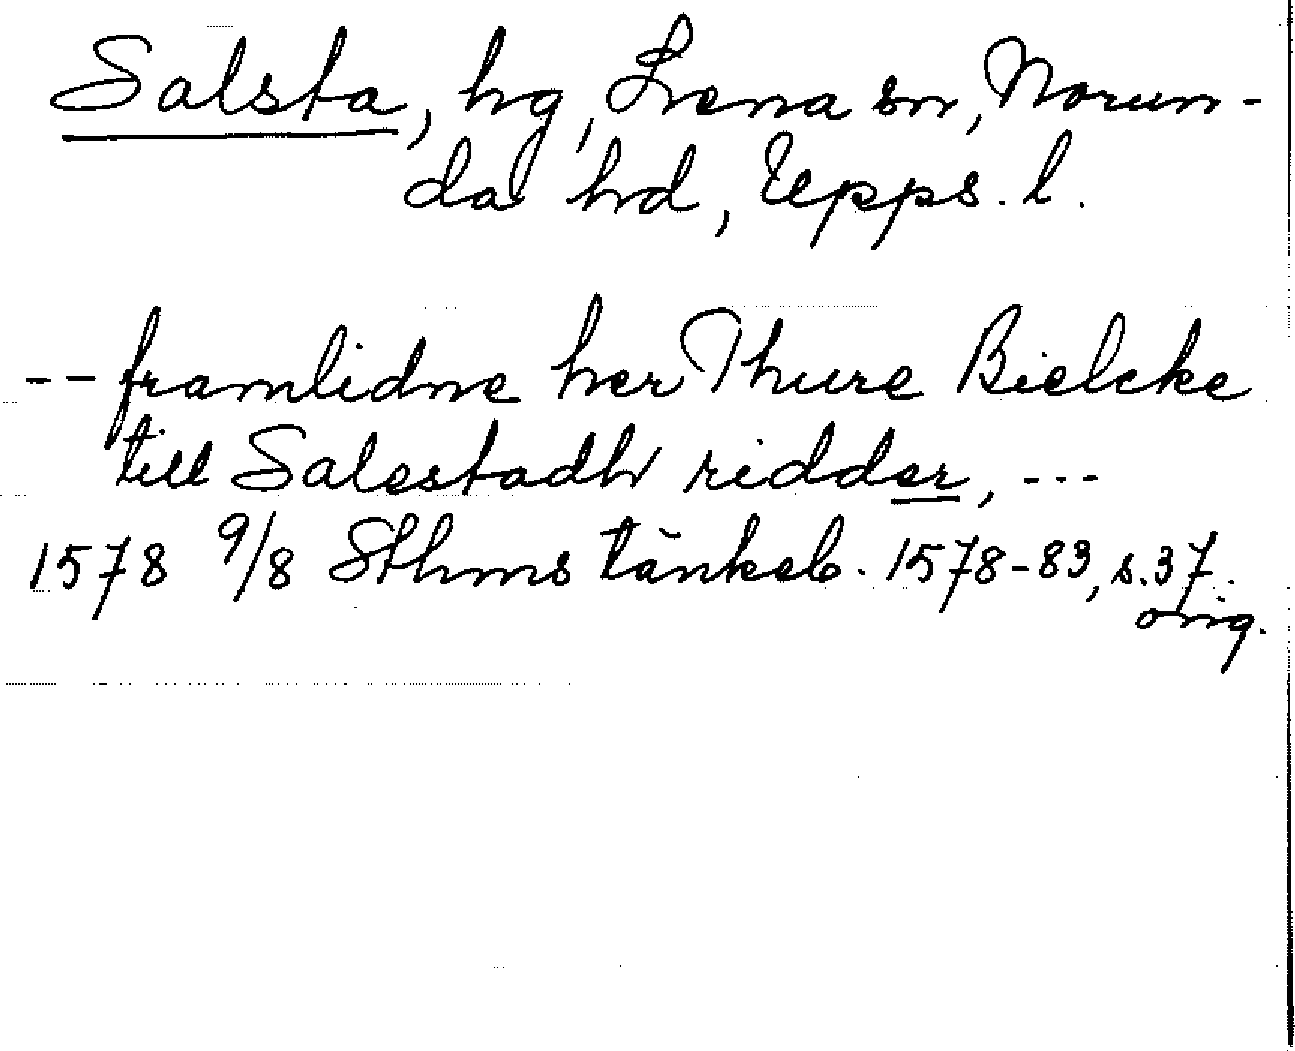 Salsta, hg, Lena sn, Norun-
da hd, Upps. l.
-- framlidne her Thure Bielcke
till Salestadh ridder, ---
1578 9/8 Sthms tänkeb. 1578-83, s. 37.
orig.